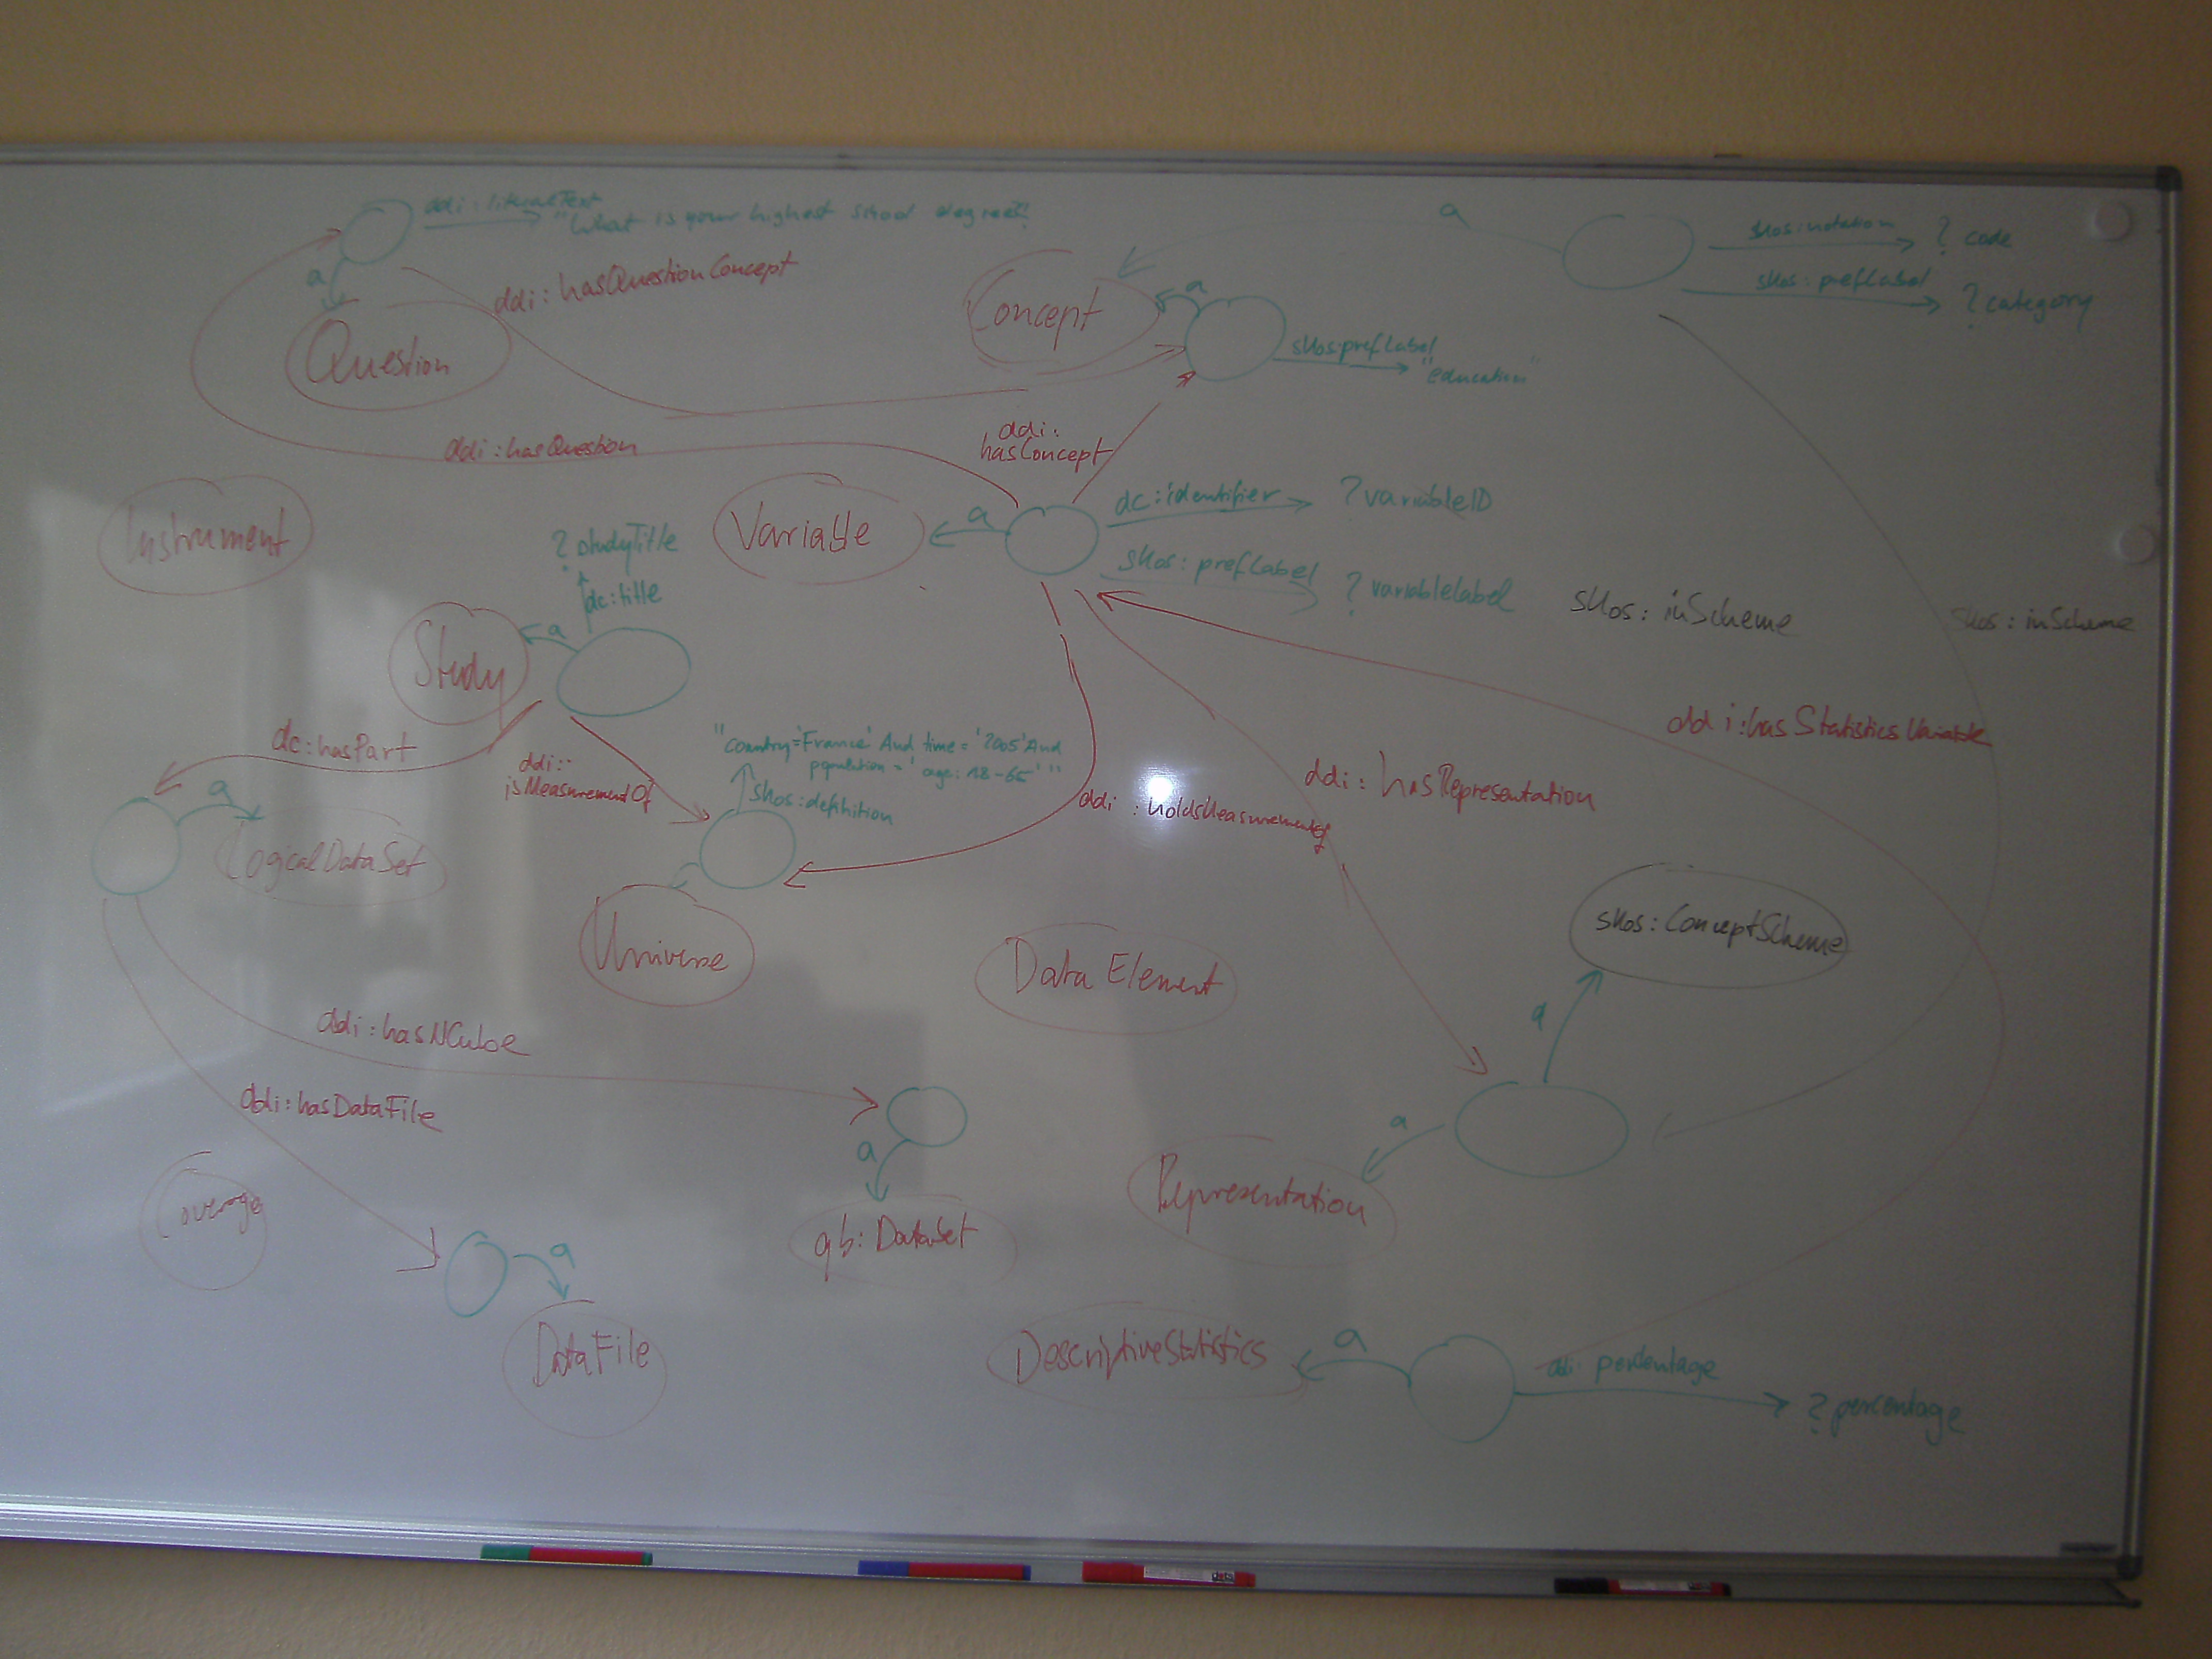 ddi:literalText
"What is your highest school degree?"
a
Question
ddi:hasQuestionConcept
Concept
a
a
skos:prefLabel
"education"
skos:notation
? code
skos:prefLabel
? category
ddi:hasQuestion
ddi:
hasConcept
Instrument
? studyTitle
dc:title
Variable
a
dc:identifier
? variableID
skos:prefLabel
? variableLabel
skos:inScheme
skos:inScheme
Study
a
dc:hasPart
ddi:
isMeasurementOf
"country='France' And time='2005' And
population='age:18-65'"
skos:definition
ddi:holdsMeasurementOf
ddi:hasRepresentation
ddi:hasStatisticsVariable
a
LogicalDataSet
Universe
Data Element
skos:ConceptScheme
a
ddi:hasNCube
ddi:hasDataFile
a
qb:DataSet
a
Representation
Coverage
a
DataFile
DescriptiveStatistics
a
ddi:percentage
? percentage